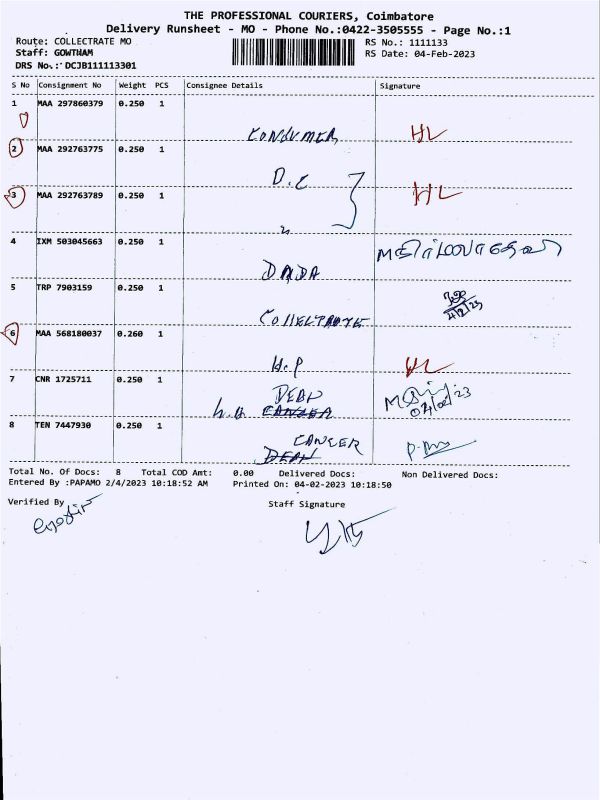 THE PROFESSIONAL COURIERS, Coimbatore
Delivery Runsheet - MO - Phone No.:0422-3505555 - Page No.:1
Route: COLLECTRATE MO RS No.: 1111133
Staff: GOWTHAM RS Date: 04-Feb-2023
DRS No.: DCJB111113301
S No Consignment No Weight PCS Consignee Details Signature
1 MAA 297860379 0.250 1
CONSUMER HL
2 MAA 292763775 0.250 1
D.E
3 MAA 292763789 0.250 1 HL
4 IXM 503045663 0.250 1
DRDA
5 TRP 7903159 0.250 1
4/2/23
COLLECTRATE
6 MAA 568180037 0.260 1
H.P HL
7 CNR 1725711 0.250 1
DEAN
CANCER 04/02/23
8 TEN 7447930 0.250 1
CANCER
DEAN
Total No. Of Docs: 8 Total COD Amt: 0.00 Delivered Docs: Non Delivered Docs:
Entered By :PAPAMO 2/4/2023 10:18:52 AM Printed On: 04-02-2023 10:18:50
Verified By Staff Signature